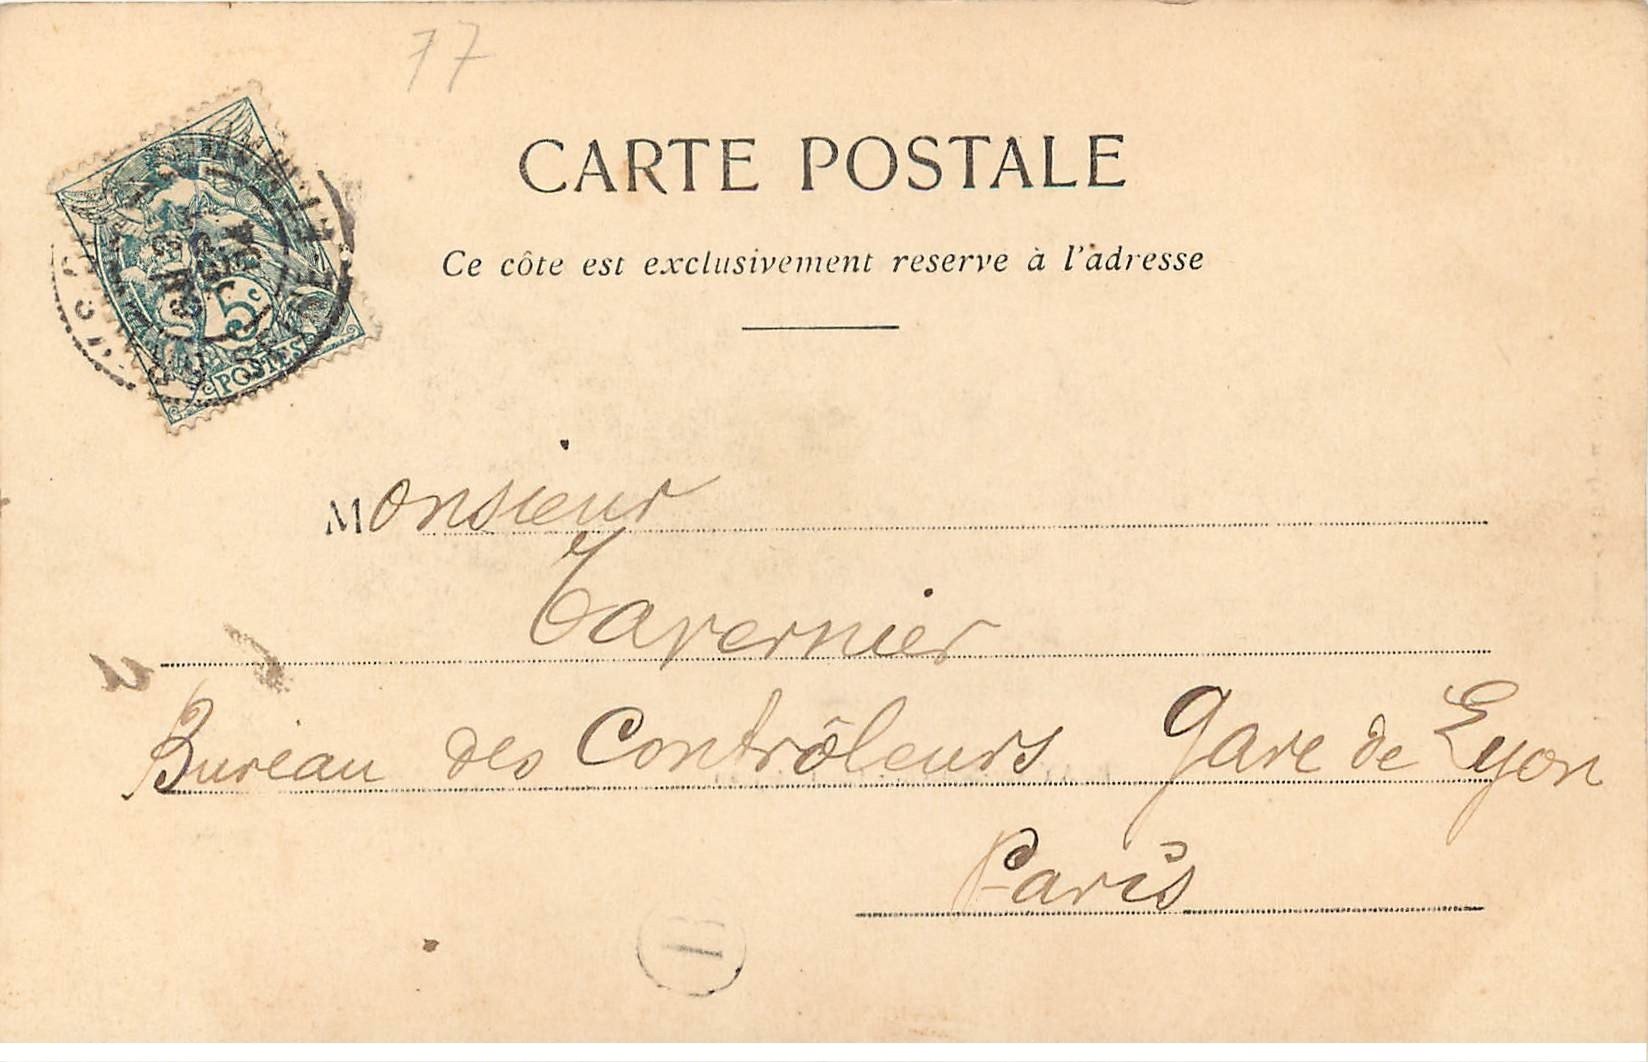 77
CARTE POSTALE
Ce côte est exclusivement reserve à l'adresse
5c
POSTES
Monsieur
Tavernier
Bureau des Contrôleurs Gare de Lyon
Paris